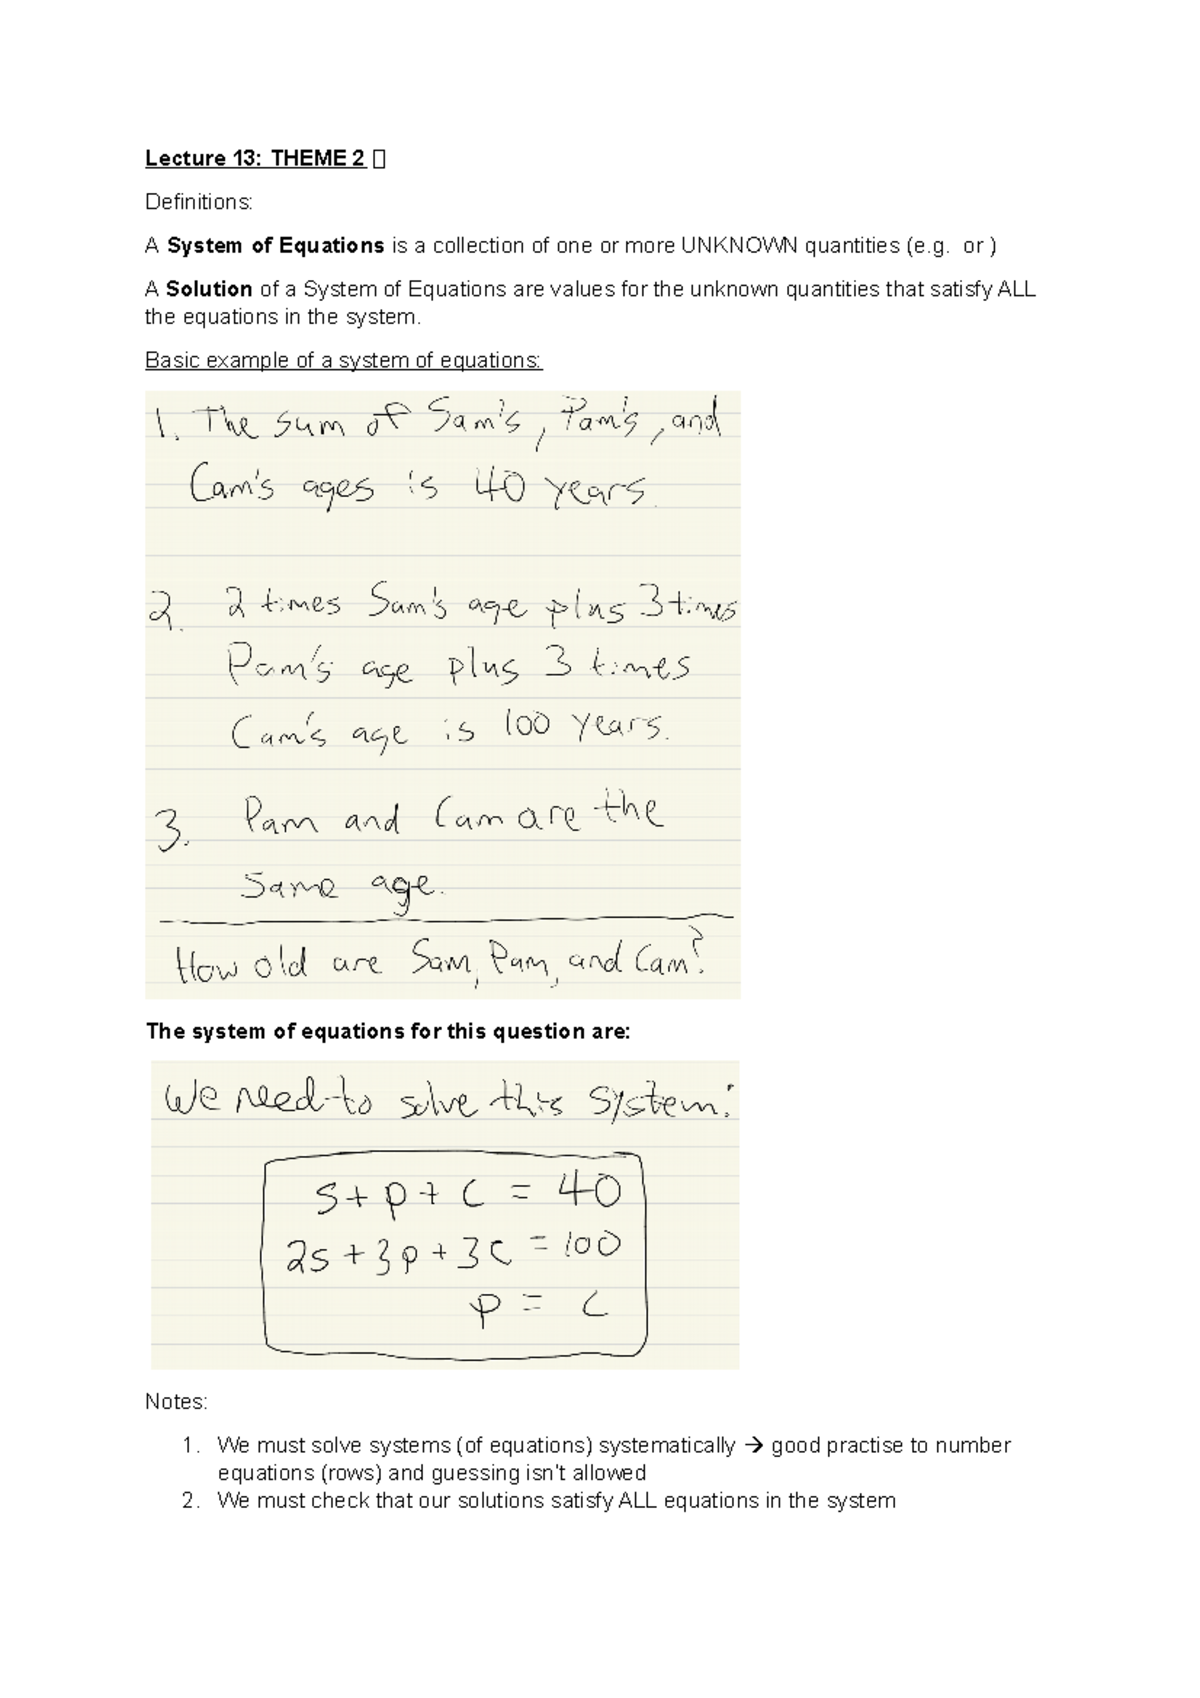 Lecture 13: THEME 2
Definitions:
A System of Equations is a collection of one or more UNKNOWN quantities (e.g.  or )
A Solution of a System of Equations are values for the unknown quantities that satisfy ALL
the equations in the system.
Basic example of a system of equations:
1. The sum of Sam's, Pam's, and
Cam's ages is 40 years.
2. 2 times Sam's age plus 3 times
Pam's age plus 3 times
Cam's age is 100 years.
3. Pam and Cam are the
same age.
How old are Sam, Pam, and Cam?
The system of equations for this question are:
We need to solve this system:
s + p + c = 40
2s + 3p + 3c = 100
p = c
Notes:
1. We must solve systems (of equations) systematically → good practise to number
equations (rows) and guessing isn't allowed
2. We must check that our solutions satisfy ALL equations in the system